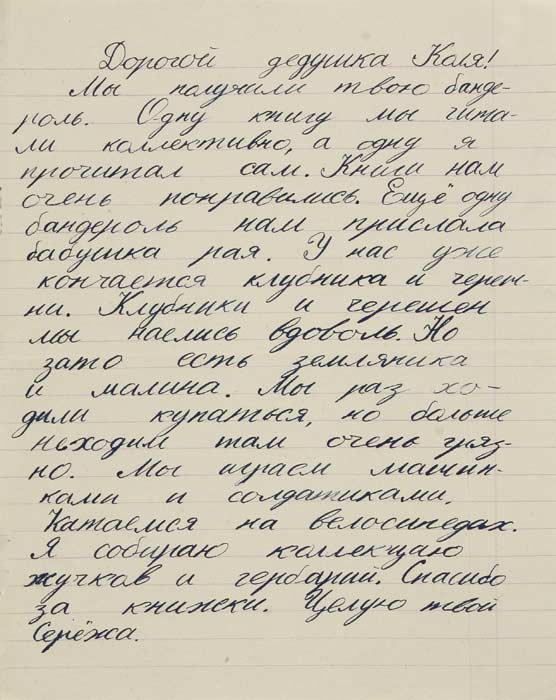 Дорогой дедушка Коля!
Мы получили твою банде-
роль. Одну книгу мы чита-
ли коллективно, а одну я
прочитал сам. Книги нам
очень понравились. Ещё одну
бандероль нам прислала
бабушка рая. У нас уже
кончается клубника и череш-
ни. Клубники и черешен
мы наелись вдоволь. Но
зато есть земляника
и малина. Мы раз хо-
дили купаться, но больше
неходим там очень гряз-
но. Мы играем машин-
ками и солдатиками.
Катаемся на велосипедах.
Я собираю коллекцаю
жучков и гербарий. Спасибо
за книжски. Целую твой
Серёжа.